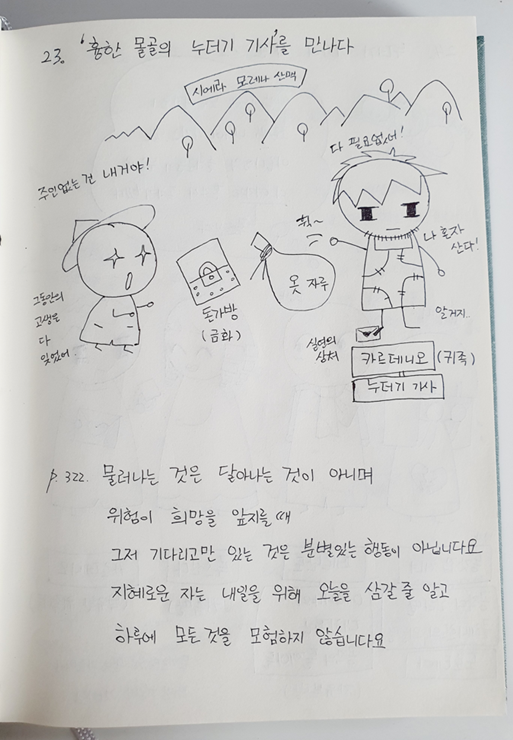 23. '흉한 몰골의 누더기 기사'를 만나다
시에라 모레나 산맥
다 필요없어!
주인없는건 내거야!
휙~
나 혼자
산다!
그동안의
고생을
다
잊었어..
돈가방
(금화)
옷 자루
알거지..
실연의
상처
카르데니오 (귀족)
누더기 기사
p.322. 물러나는 것은 달아나는 것이 아니며
위험이 희망을 앞지를 때
그저 기다리고만 있는 것은 분별있는 행동이 아닙니다요
지혜로운 자는 내일을 위해 오늘을 삼갈 줄 알고
하루에 모든 것을 모험하지 않습니다요